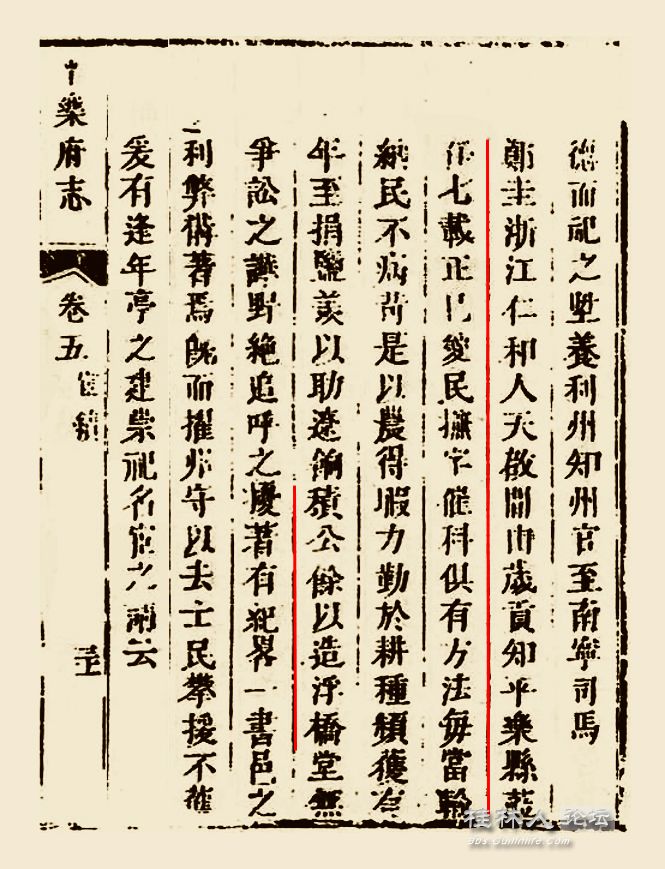 德而祀之陞養利州知州官至南寧司馬
鄭圭浙江仁和人天啟間由歲貢知平樂縣蒞
任七載正己愛民撫字催科俱有方法每當輸
納民不病苛是以農得暇力勤於耕種頻獲有
年至捐鹽羨以助遼餉積公餘以造浮橋堂無
爭訟之譁野絕追呼之擾著有紀畧一書邑之
利弊備著焉既而擢州守以去士民攀援不獲
爰有逢年亭之建崇祀名宦之請云
樂府志
卷五
宦績
桂林人论坛
bbs.Guilinlife.com